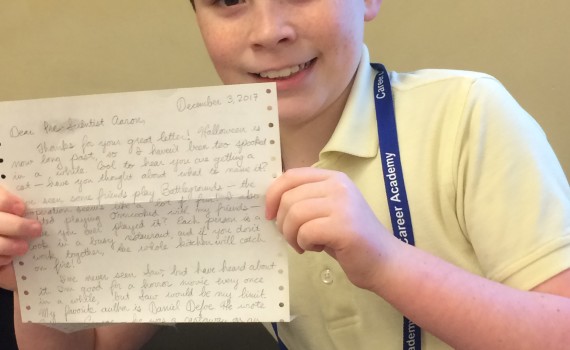 December 3, 2017
Dear Pre-Scientist Aaron,
Thanks for your great letter! Halloween is
now long past, so I haven't been too spooked
in a while. Cool to hear you are getting a
cat - have you thought about what to name it?
seen some friends play Battlegrounds - the
like a lot of
playing Overcooked with my friends -
you played it? Each person is a
cook in a busy restaurant and if you don't
work together, the whole kitchen will catch
on fire!
I've never seen Saw, but have heard about
it. I'm good for a horror movie every once
in a while, but Saw would be my limit.
My favorite author is Daniel Defoe. He wrote
Career Academy
Career
ademy